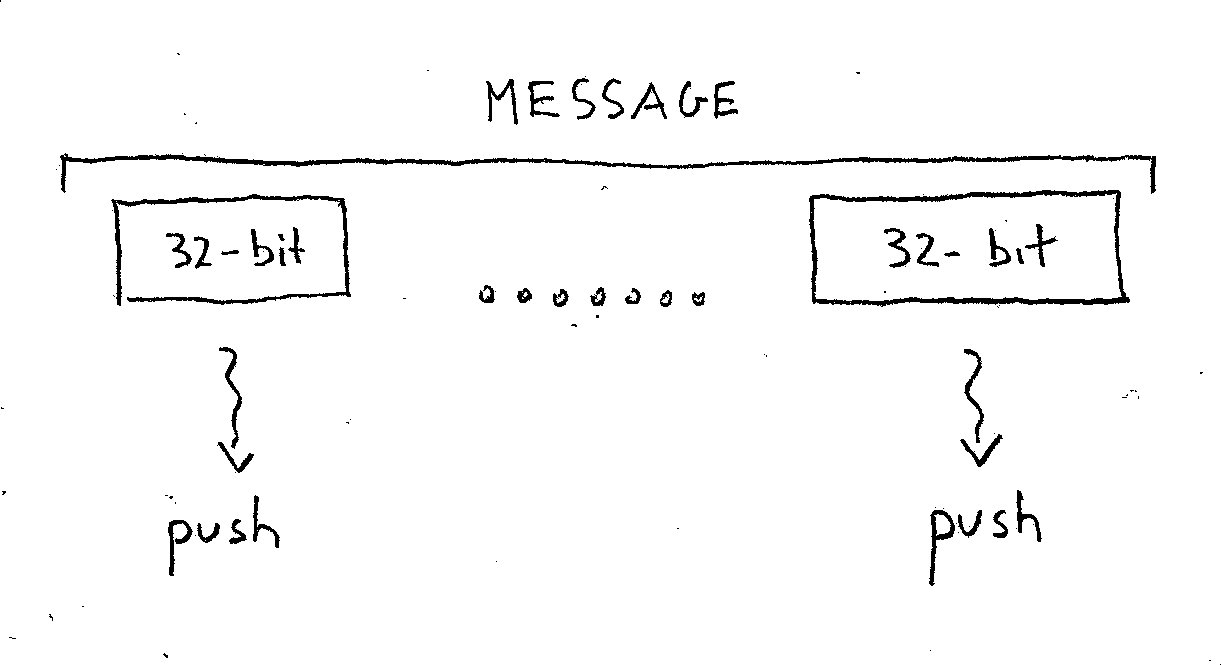 MESSAGE
32-bit
32-bit
push
push